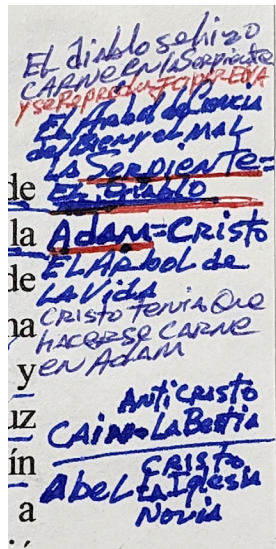 El diablo se hizo
CARNE EN LA Serpiente
y se Reprodujo por EVA
El Arbol de Ciencia
del Bien y el MAL
LA Serpiente=
de El Diablo
la Adam=Cristo
de El Arbol de
LA Vida
na Cristo tenia Que
HACERSE CARNE
y EN Adam
Anticristo
uz CAin=La Bestia
ín Cristo
Abel La Iglesia
a Novia